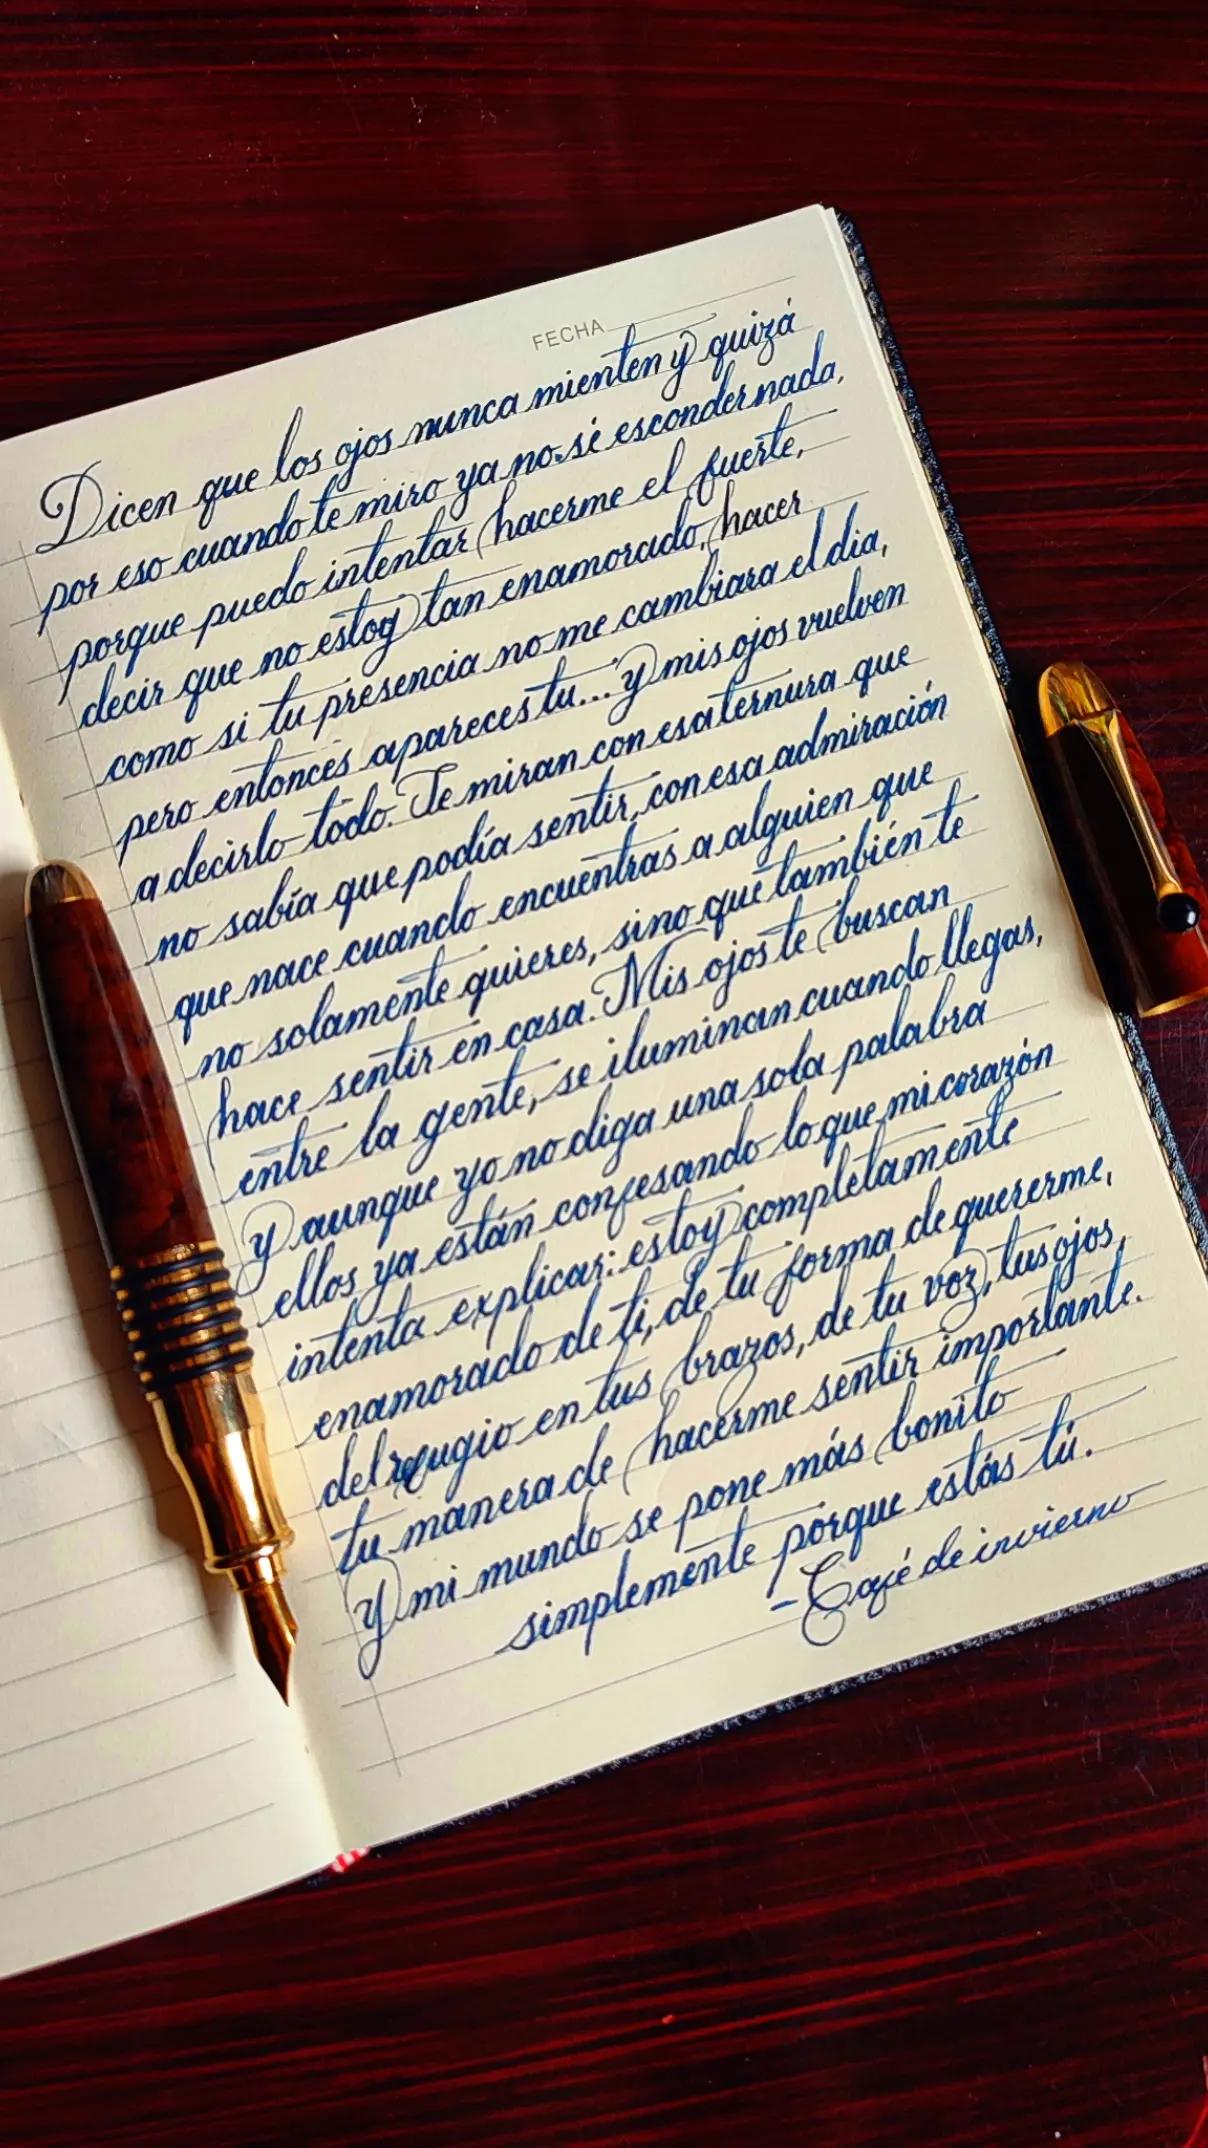 FECHA
Dicen que los ojos nunca mienten y quizá
por eso cuando te miro ya no sé esconder nada,
porque puedo intentar hacerme el fuerte,
decir que no estoy tan enamorado, hacer
como si tu presencia no me cambiara el día,
pero entonces apareces tu... y mis ojos vuelven
a decirlo todo. Te miran con esa ternura que
no sabía que podía sentir, con esa admiración
que nace cuando encuentras a alguien que
no solamente quieres, sino que también te
hace sentir en casa. Mis ojos te buscan
entre la gente, se iluminan cuando llegas,
y aunque yo no diga una sola palabra
ellos ya están confesando lo que mi corazón
intenta explicar: estoy completamente
enamorado de ti, de tu forma de quererme,
del refugio en tus brazos, de tu voz, tus ojos,
tu manera de hacerme sentir importante.
Y mi mundo se pone más bonito
simplemente porque estás tú.
-Café de invierno